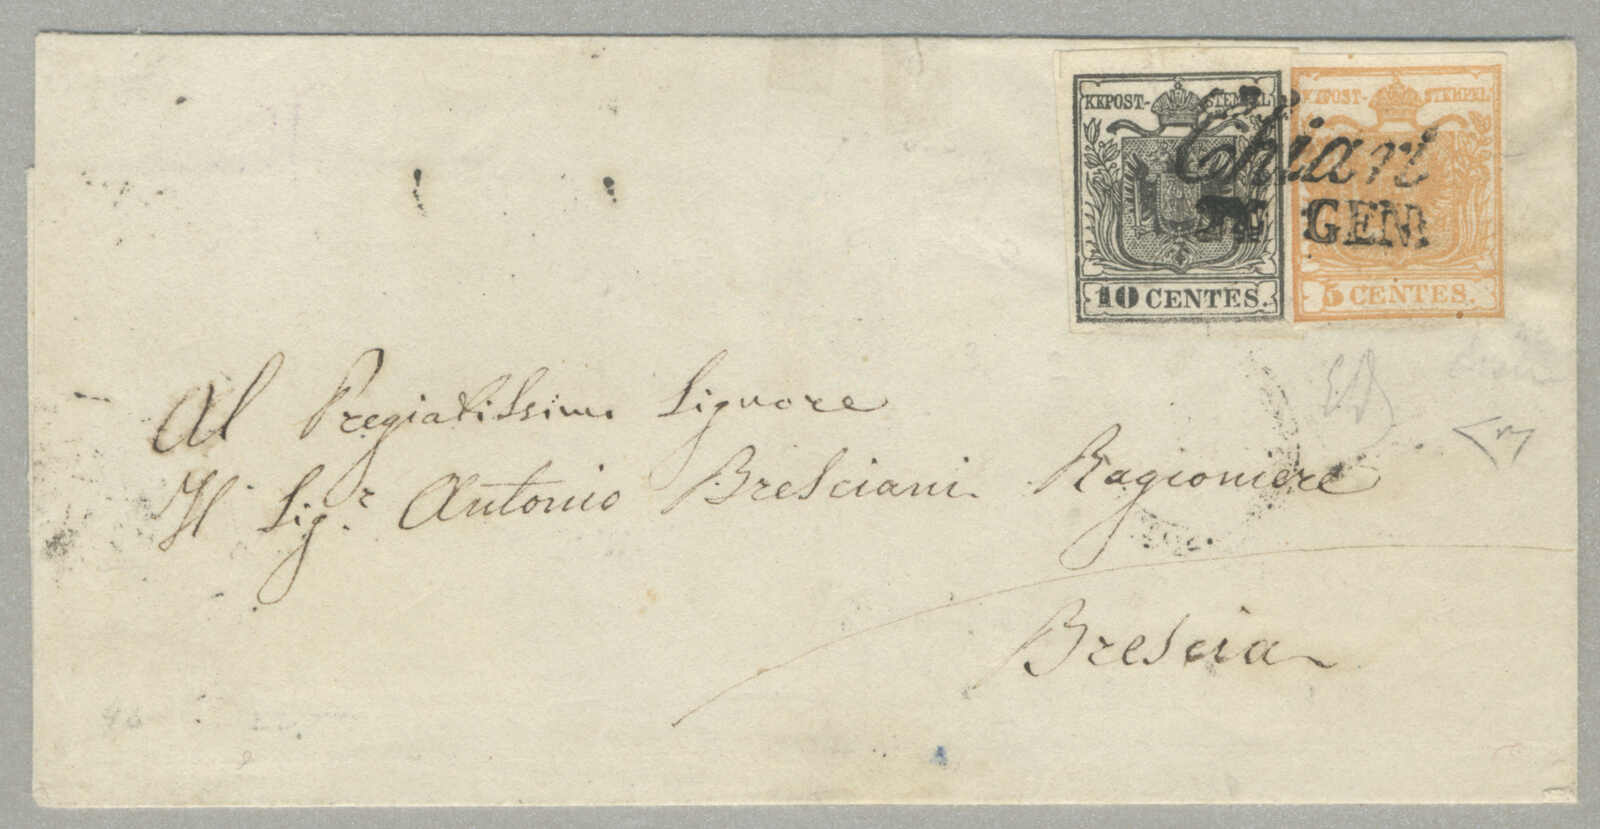 KKPOST-STEMPEL
KKPOST-STEMPEL
Chiari
GEN
10 CENTES.
5 CENTES.
Al Pregiatissimo Signore
Il Sig.r Antonio Bresciani Ragioniere
Brescia